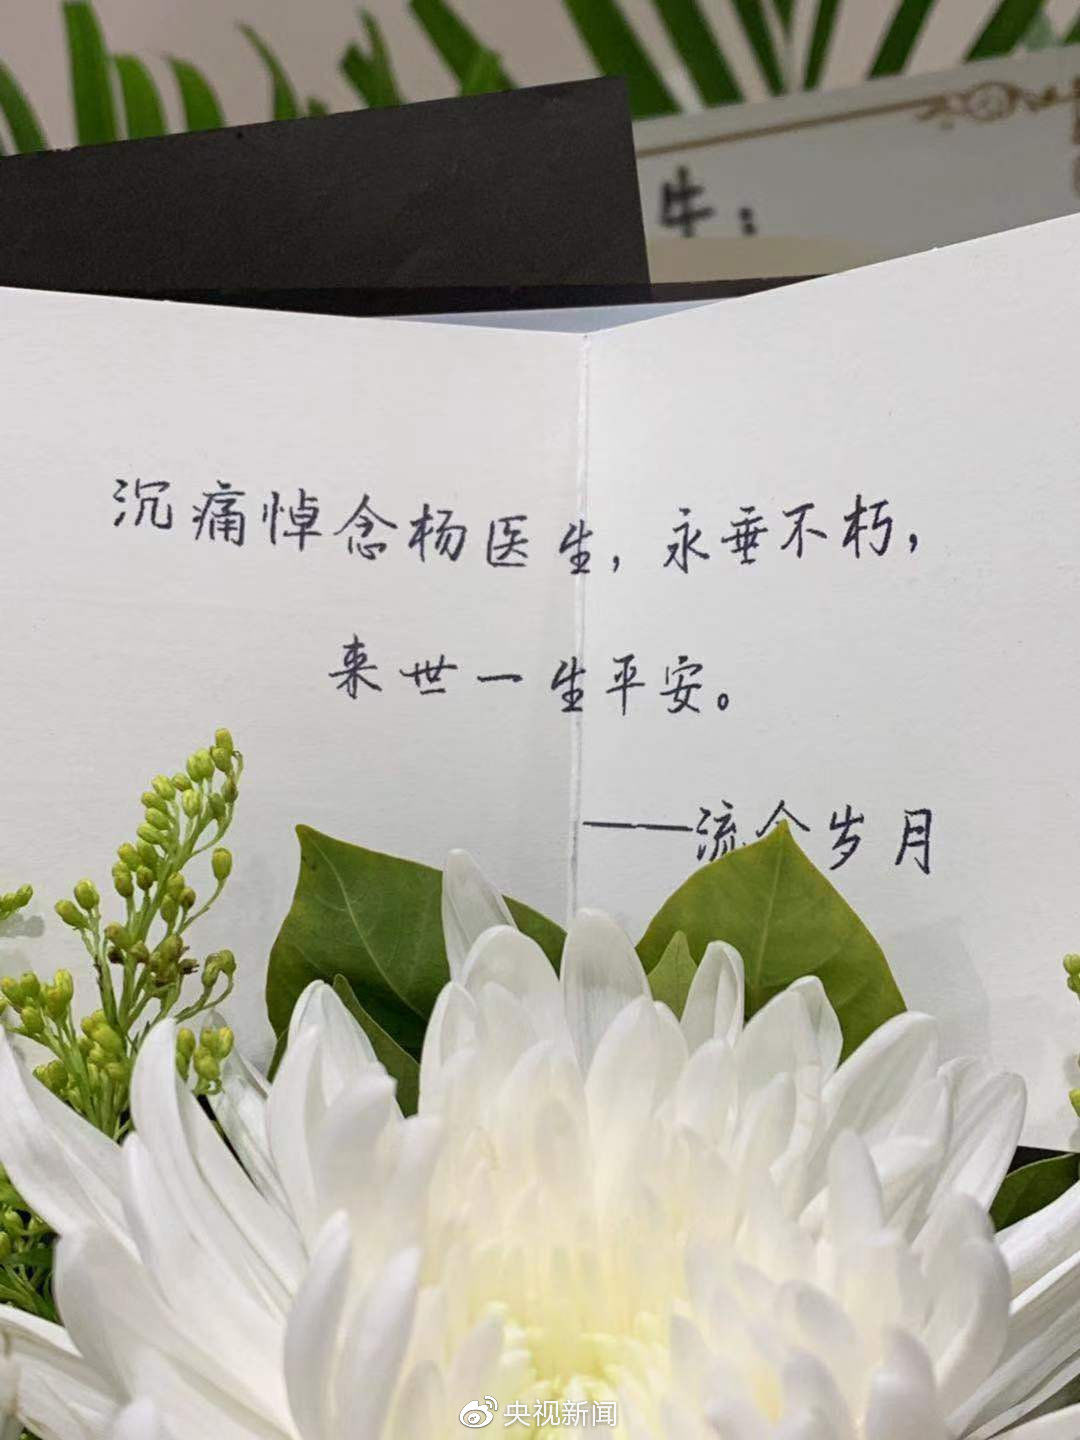 生：
沉痛悼念杨医生，永垂不朽，
来世一生平安。
——流金岁月
央视新闻